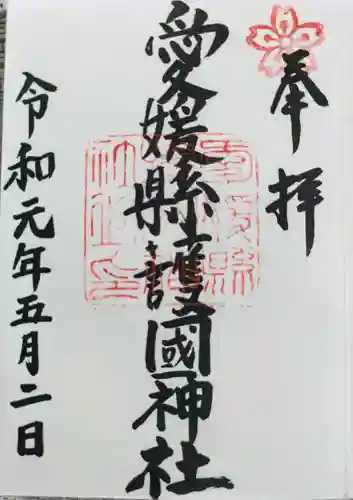 奉拝
愛媛縣護國神社
令和元年五月二日